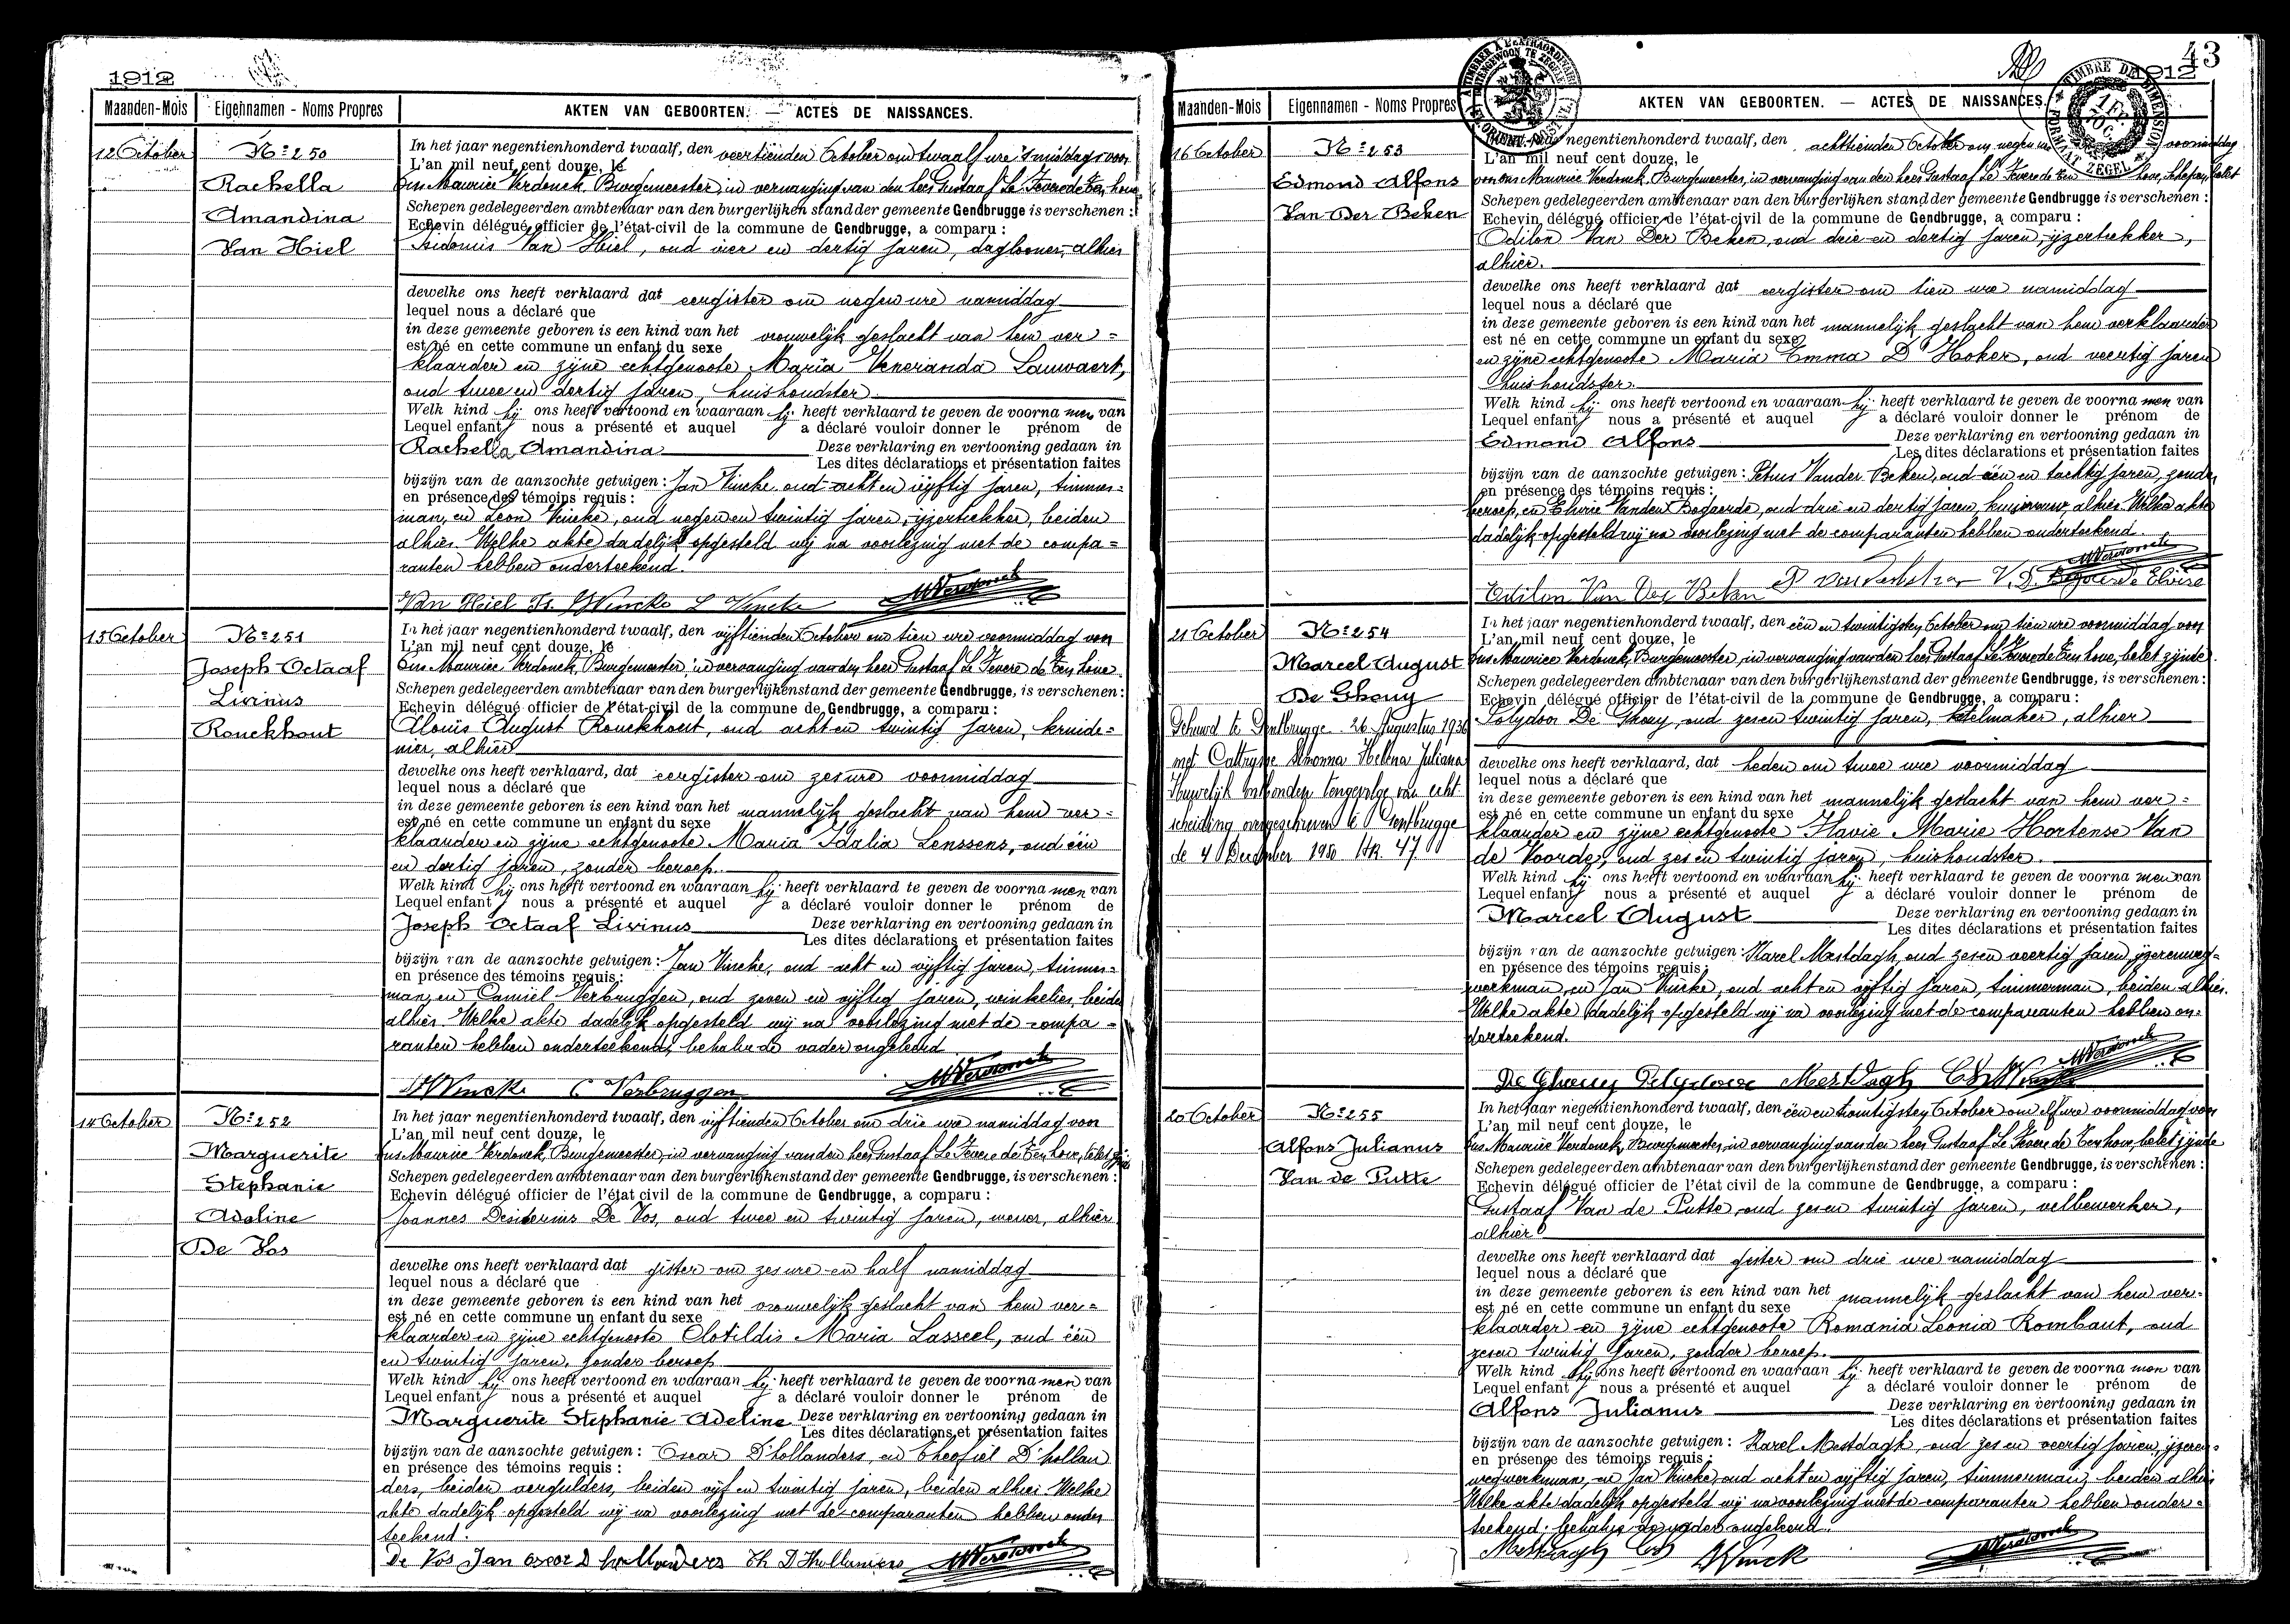 1912
Maanden-Mois Eigennamen - Noms Propres AKTEN VAN GEBOORTEN. — ACTES DE NAISSANCES.
12 October
Nº 250
Rachella
Amandina
Van Hiel
In het jaar negentienhonderd twaalf, den veertienden October om twaalf ure 's middags voor
L'an mil neuf cent douze, le
Ons Maurice Verdonck, Burgemeester, in vervanging van den heer Gustaaf Le Fevere de Ten hove
Schepen gedelegeerden ambtenaar van den burgerlijken stand der gemeente Gendbrugge is verschenen :
Echevin délégué officier de l'état-civil de la commune de Gendbrugge, a comparu :
Isidonis Van Hiel, oud vier en dertig jaren, daglooner, alhier
dewelke ons heeft verklaard dat eergister om negen ure namiddag
lequel nous a déclaré que
in deze gemeente geboren is een kind van het vrouwelijk geslacht van hem ver=
est né en cette commune un enfant du sexe
klaarder en zijne echtgenoote Maria Veneranda Lauwaert,
oud twee en dertig jaren, huishoudster
Welk kind hij ons heeft vertoond en waaraan hij heeft verklaard te geven de voornamen van
Lequel enfant nous a présenté et auquel a déclaré vouloir donner le prénom de
Rachella Amandina Deze verklaring en vertooning gedaan in
Les dites déclarations et présentation faites
bijzijn van de aanzochte getuigen : Jan Vincke oud acht en vijftig jaren, timmer=
en présence des témoins requis :
man, en Leon Vincke, oud negen en twintig jaren, ijzertrekker, beiden
alhier Welke akte dadelijk opgesteld wij na voorlezing met de compa=
ranten hebben onderteekend.
Van Hiel Is. JVincke L Vincke MVerdonck
13 October
Nº 251
Joseph Octaaf
Livinus
Ronckhout
In het jaar negentienhonderd twaalf, den vijftienden October om tien ure voormiddag voor
L'an mil neuf cent douze, le
Ons Maurice Verdonck, Burgemeester, in vervanging van den heer Gustaaf Le Fevere de Ten hove
Schepen gedelegeerden ambtenaar van den burgerlijkenstand der gemeente Gendbrugge, is verschenen :
Echevin délégué officier de l'état-civil de la commune de Gendbrugge, a comparu :
Alouis August Ronckhout, oud acht en twintig jaren, kruide=
nier, alhier
dewelke ons heeft verklaard, dat eergister om zes ure voormiddag
lequel nous a déclaré que
in deze gemeente geboren is een kind van het mannelijk geslacht van hem ver=
est né en cette commune un enfant du sexe
klaarder en zijne echtgenoote Maria Idalia Lenssens, oud één
en dertig jaren, zonder beroep.
Welk kind hij ons heeft vertoond en waaraan hij heeft verklaard te geven de voornamen van
Lequel enfant nous a présenté et auquel a déclaré vouloir donner le prénom de
Joseph Octaaf Livinus Deze verklaring en vertooning gedaan in
Les dites déclarations et présentation faites
bijzijn van de aanzochte getuigen : Jan Vincke, oud acht en vijftig jaren, timmer=
en présence des témoins requis :
man, en Camiel Verbruggen, oud zeven en vijftig jaren, winkelier, beide
alhier Welke akte dadelijk opgesteld wij na voorlezing met de compa=
ranten hebben onderteekend, behalve de vader ongeleerd
JVincke C Verbruggen MVerdonck
14 October
Nº 252
Marguerite
Stephanie
Adeline
De Vos
In het jaar negentienhonderd twaalf, den vijftienden October om drie ure namiddag voor
L'an mil neuf cent douze, le
Ons Maurice Verdonck, Burgemeester, in vervanging van den heer Gustaaf Le Fevere de Ten hove, belet zijnde
Schepen gedelegeerden ambtenaar van den burgerlijkenstand der gemeente Gendbrugge, is verschenen :
Echevin délégué officier de l'état civil de la commune de Gendbrugge, a comparu :
Joannes Desiderius De Vos, oud twee en twintig jaren, wever, alhier
dewelke ons heeft verklaard dat gister om zes ure en half namiddag
lequel nous a déclaré que
in deze gemeente geboren is een kind van het vrouwelijk geslacht van hem ver=
est né en cette commune un enfant du sexe
klaarder en zijne echtgenoote Clotildis Maria Lasseel, oud één
en twintig jaren, zonder beroep
Welk kind hij ons heeft vertoond en waaraan hij heeft verklaard te geven de voornamen van
Lequel enfant nous a présenté et auquel a déclaré vouloir donner le prénom de
Marguerite Stephanie Adeline Deze verklaring en vertooning gedaan in
Les dites déclarations et présentation faites
bijzijn van de aanzochte getuigen : Oscar D'hollanders, en Theofiel D'hollan
en présence des témoins requis :
ders, beiden vergulders, beiden vijf en twintig jaren, beiden alhier Welke
akte dadelijk opgesteld wij na voorlezing met de comparanten hebben onder
teekend.
De Vos Jan Oscar D hollanders Th D'Hollanders MVerdonck
43
1912
Maanden-Mois Eigennamen - Noms Propres AKTEN VAN GEBOORTEN. — ACTES DE NAISSANCES.
16 October
Nº 253
Edmond Alfons
Van Der Beken
negentienhonderd twaalf, den achttienden October om negen ure voormiddag
L'an mil neuf cent douze, le
voor ons Maurice Verdonck, Burgemeester, in vervanging van den heer Gustaaf Le Fevere de Ten hove, schepen, belet
Schepen gedelegeerden ambtenaar van den burgerlijken stand der gemeente Gendbrugge is verschenen :
Echevin délégué officier de l'état-civil de la commune de Gendbrugge, a comparu :
Odilon Van Der Beken, oud drie en dertig jaren, ijzertrekker,
alhier.
dewelke ons heeft verklaard dat eergister om tien ure namiddag
lequel nous a déclaré que
in deze gemeente geboren is een kind van het mannelijk geslacht van hem verklaarder
est né en cette commune un enfant du sexe
en zijne echtgenoote Maria Emma D'Hoker, oud veertig jaren
huishoudster.
Welk kind hij ons heeft vertoond en waaraan hij heeft verklaard te geven de voornamen van
Lequel enfant nous a présenté et auquel a déclaré vouloir donner le prénom de
Edmond Alfons Deze verklaring en vertooning gedaan in
Les dites déclarations et présentation faites
bijzijn van de aanzochte getuigen : Petrus Vander Beken, oud één en tachtig jaren, zonder
en présence des témoins requis :
beroep, en Elvire Vanden Bogaerde, oud drie en dertig jaren, alhier Welke akte
dadelijk opgesteld wij na voorlezing met de comparanten hebben onderteekend.
MVerdonck
Odilon Van Der Beken V. D. Bogaerde Elvire
21 October
Nº 254
Marcel August
De Ghouy
Gehuwd te Gentbrugge 26 Augustus 1936
met Cattrysse Simonna Helena Juliana
Huwelijk ontbonden tengevolge van echt-
scheiding overgeschreven te Gentbrugge
de 4 December 1950 Nr. 47
In het jaar negentienhonderd twaalf, den één en twintigsten October om tien ure voormiddag voor
L'an mil neuf cent douze, le
Ons Maurice Verdonck, Burgemeester, in vervanging van den heer Gustaaf Le Fevere de Ten hove, belet zijnde
Schepen gedelegeerden ambtenaar van den burgerlijkenstand der gemeente Gendbrugge, is verschenen :
Echevin délégué officier de l'état-civil de la commune de Gendbrugge, a comparu :
Polydoor De Ghouy, oud zes en twintig jaren, ketelmaker, alhier
dewelke ons heeft verklaard, dat heden om twee ure voormiddag
lequel nous a déclaré que
in deze gemeente geboren is een kind van het mannelijk geslacht van hem ver=
est né en cette commune un enfant du sexe
klaarder en zijne echtgenoote Flavie Marie Hortense Van
de Voorde, oud zes en twintig jaren, huishoudster.
Welk kind hij ons heeft vertoond en waaraan hij heeft verklaard te geven de voornamen van
Lequel enfant nous a présenté et auquel a déclaré vouloir donner le prénom de
Marcel August Deze verklaring en vertooning gedaan in
Les dites déclarations et présentation faites
bijzijn van de aanzochte getuigen : Karel Mestdagh, oud zes en veertig jaren, ijzerenweg=
en présence des témoins requis :
werkman, en Jan Vincke, oud acht en vijftig jaren, timmerman, beiden alhier.
Welke akte dadelijk opgesteld wij na voorlezing met de comparanten hebben on=
derteekend.
De Ghouy Polydoor Mestdagh Ch JVincke MVerdonck
20 October
Nº 255
Alfons Julianus
Van de Putte
In het jaar negentienhonderd twaalf, den één en twintigsten October om elf ure voormiddag voor
L'an mil neuf cent douze, le
Ons Maurice Verdonck, Burgemeester, in vervanging van den heer Gustaaf Le Fevere de Ten hove, belet zijnde
Schepen gedelegeerden ambtenaar van den burgerlijkenstand der gemeente Gendbrugge, is verschenen :
Echevin délégué officier de l'état civil de la commune de Gendbrugge, a comparu :
Gustaaf Van de Putte, oud zes en twintig jaren, velbewerker,
alhier
dewelke ons heeft verklaard dat gister om drie ure namiddag
lequel nous a déclaré que
in deze gemeente geboren is een kind van het mannelijk geslacht van hem ver=
est né en cette commune un enfant du sexe
klaarder en zijne echtgenoote Romania Leonia Rombaut, oud
zes en twintig jaren, zonder beroep.
Welk kind hij ons heeft vertoond en waaraan hij heeft verklaard te geven de voornamen van
Lequel enfant nous a présenté et auquel a déclaré vouloir donner le prénom de
Alfons Julianus Deze verklaring en vertooning gedaan in
Les dites déclarations et présentation faites
bijzijn van de aanzochte getuigen : Karel Mestdagh, oud zes en veertig jaren, ijzeren=
en présence des témoins requis :
wegwerkman, en Jan Vincke, oud acht en vijftig jaren, timmerman, beiden alhier
Welke akte dadelijk opgesteld wij na voorlezing met de comparanten hebben onder=
teekend. behalve de vader ongeleerd.
Mestdagh Ch JVincke MVerdonck